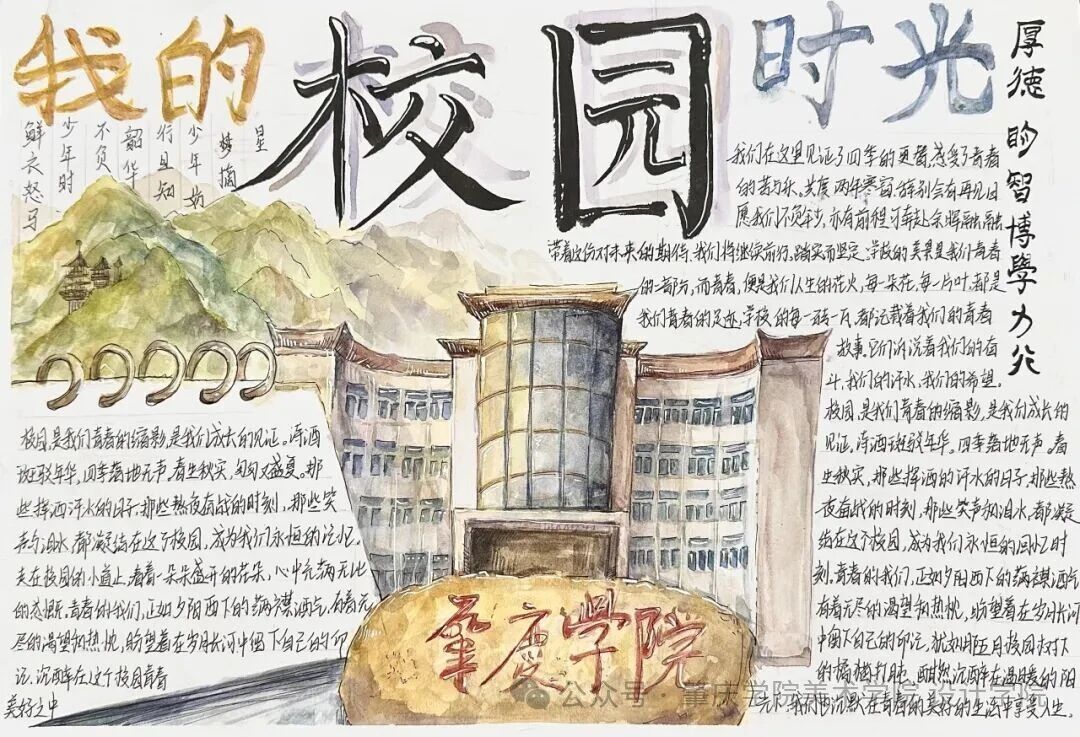 我的校园时光
厚德 明智 博學 力行
星
梦摘
少年
行且知
韶华
不负
少年时
鲜衣怒马
我们在这里见证了四季的更替,感受了青春
的苦与乐,共度两年寒窗,辞别会有再见日
愿我们不负年少,亦有前程可奔赴,余晖融融
带着这份对未来的期待,我们将继续前行,踏实而坚定,学校的美景是我们青春
的一部分,而青春,便是我们人生的花火,每一朵花,每一片叶,都是
我们青春的足迹,学校的每一砖一瓦,都记载着我们的青春
故事。它们诉说着我们的奋
斗,我们的汗水,我们的希望。
校园,是我们青春的缩影,是我们成长的
见证,浮洒斑驳年华,四季落地无声。春
生秋实,那些挥洒的汗水的日子,那些熬
夜奋战的时刻,那些笑声和泪水,都凝
结在这个校园,成为我们永恒的回忆时
刻。青春的我们,正如夕阳西下的
有着无尽的渴望和热忱,盼望着在岁月长河
中留下自己的印记,犹如明五月校园树下
的猫猫打盹,酣然沉醉在温暖的阳
光下,我们也沉默在青春的美好的生活中享受人生。
校园,是我们青春的缩影,是我们成长的见证。浮洒
斑驳年华,四季落地无声,春生秋实,匆匆又盛夏。那
些挥洒汗水的日子,那些熬夜奋战的时刻,那些笑
声与泪水,都凝结在这个校园,成为我们永恒的记忆。
走在校园的小道上,看着一朵朵盛开的花朵,心中充满无比
的感慨。青春的我们,正如夕阳西下的,有着无
尽的渴望和热忱,盼望着在岁月长河中留下自己的印
记,沉醉在这个校园青春
美好之中
肇慶学院
公众号·肇庆学院美术学院 设计学院